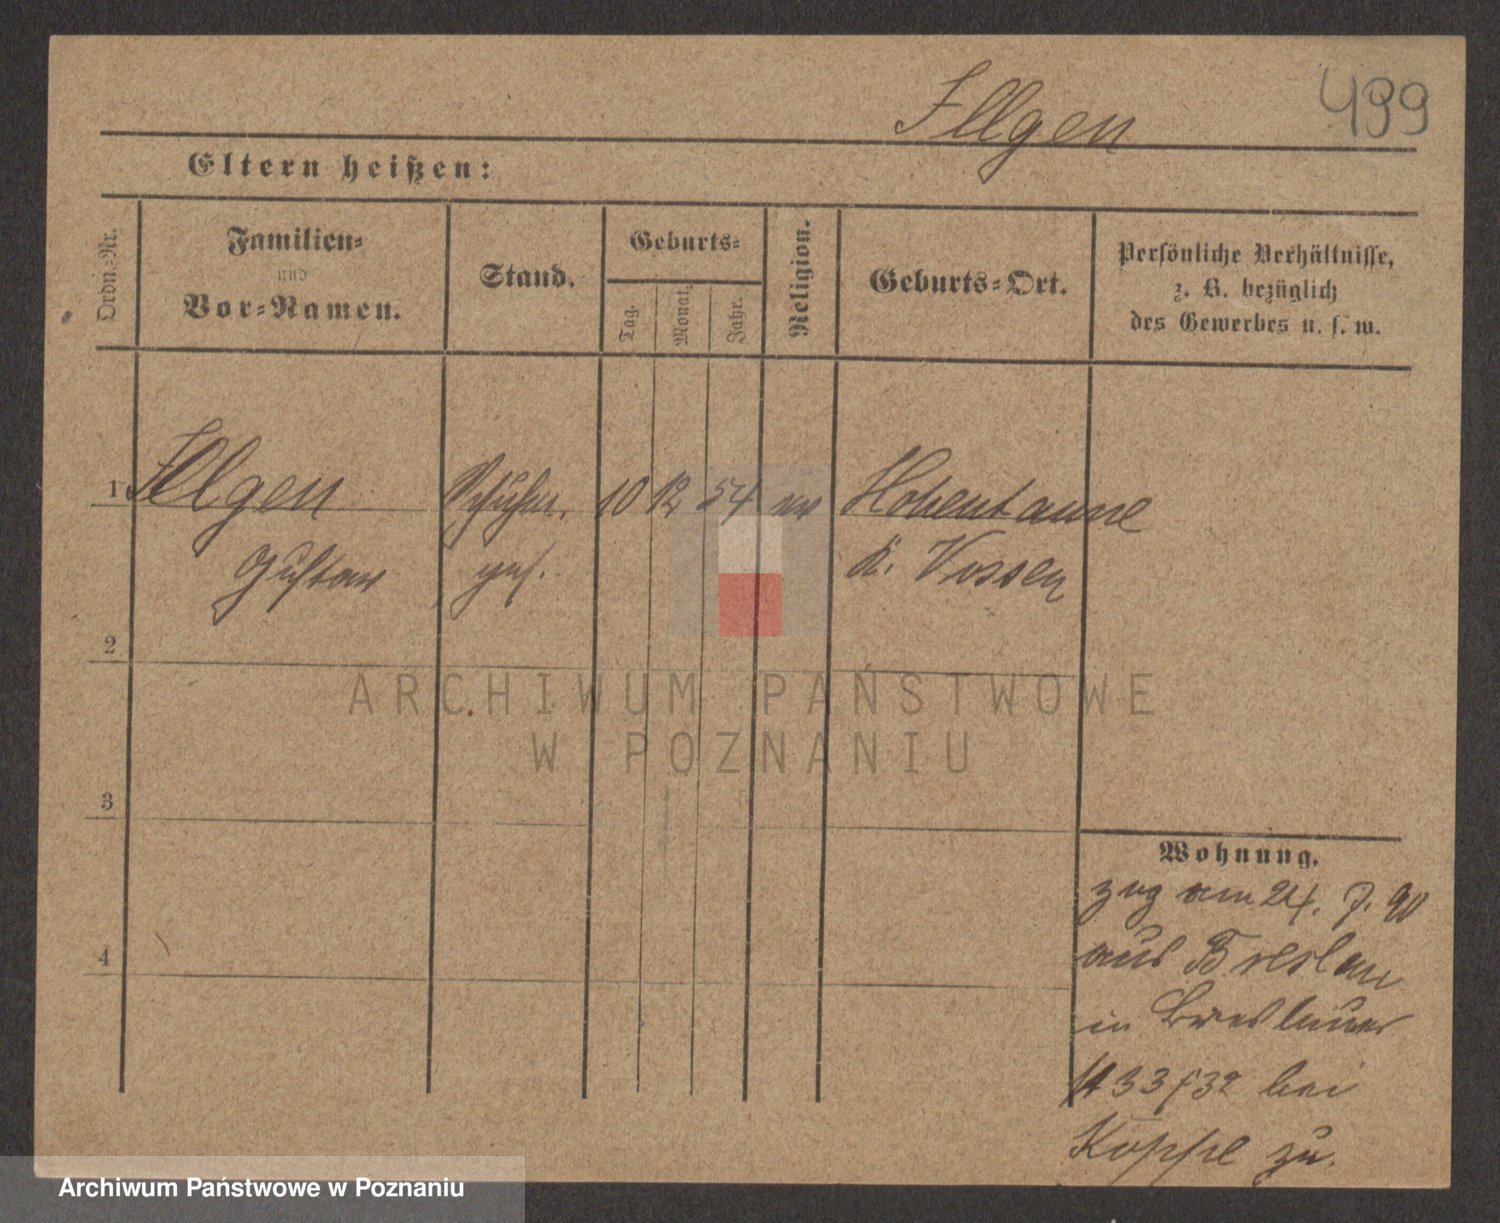 Illgen 499
Eltern heißen:
Ordn.-Nr.
Familien-
und
Vor-Namen.
Stand.
Geburts-
Tag.
Monat.
Jahr.
Religion.
Geburts-Ort.
Persönliche Verhältnisse,
z. B. bezüglich
des Gewerbes u. s. w.
1 Illgen Schuhm. 10 12 54 ev Hohentanne
Gustav ges. K.
2
3
4
Wohnung.
zug am 24. 7. 90
aus Breslau
in Breslauer
33/32 bei
Koppe zu.
ARCHIWUM PAŃSTWOWE
W POZNANIU
Archiwum Państwowe w Poznaniu